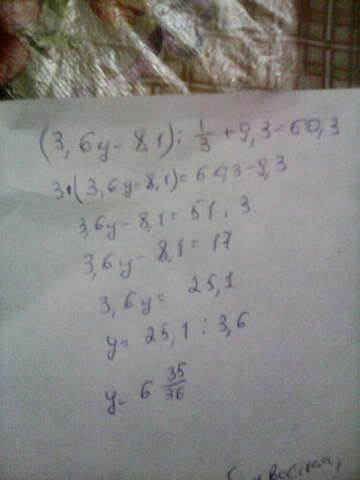 (3,6y-8,1):1/3+9,3=60,3
3·(3,6y-8,1)=60,3-9,3
3,6y-8,1=51:3
3,6y-8,1=17
3,6y=25,1
y=25,1:3,6
y=6 35/36